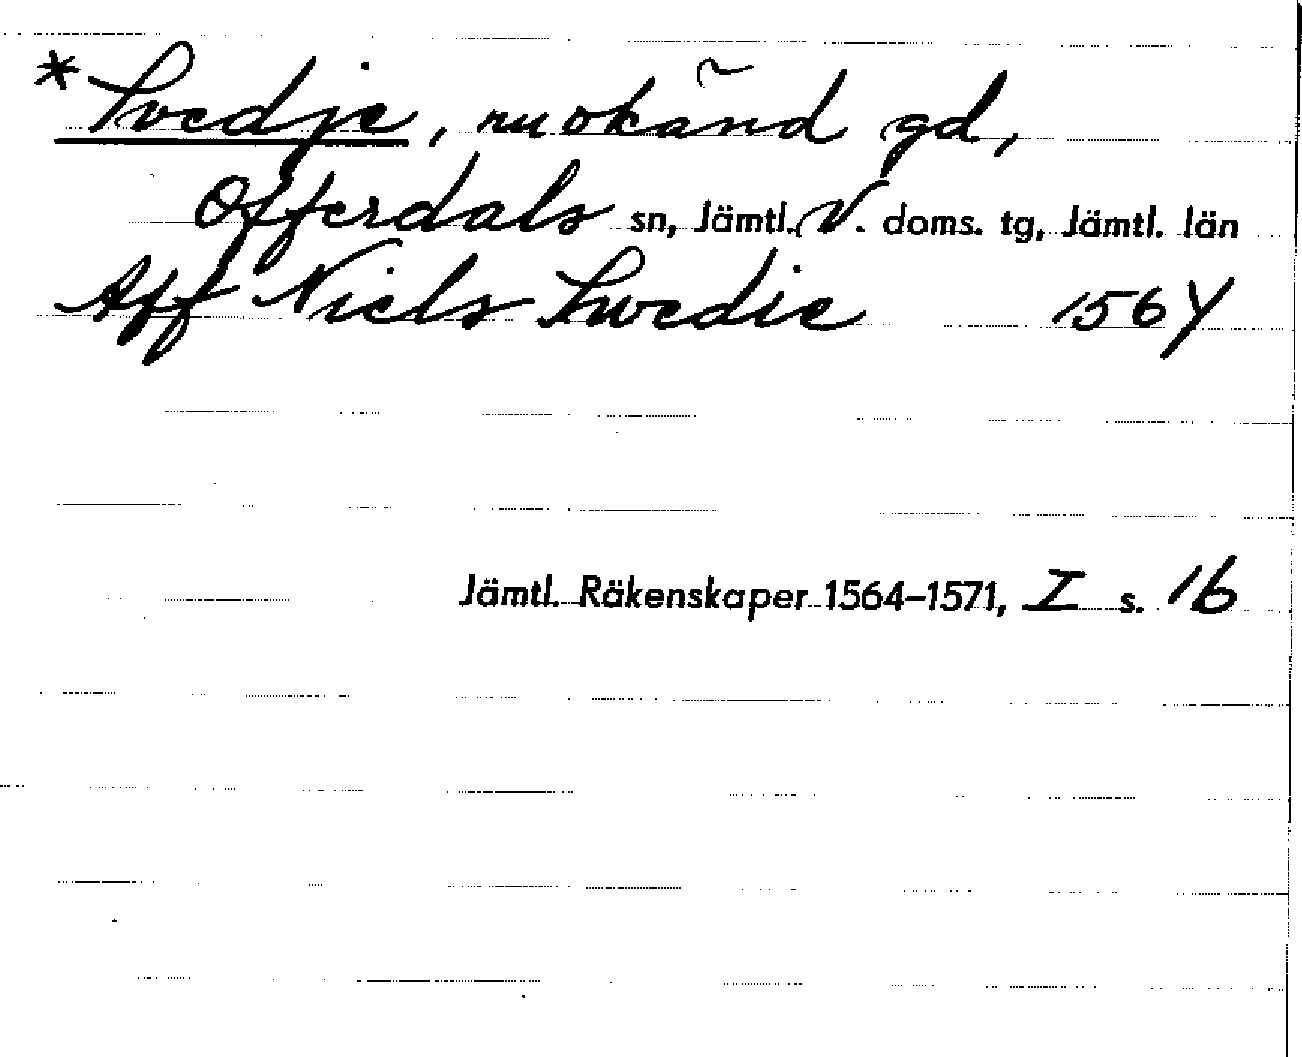 * Svedje, nu okänd gd,
Offerdals sn, Jämtl. V. doms. tg, Jämtl. län
Aff Niels Swedie 1564
Jämtl. Räkenskaper 1564–1571, I s. 16